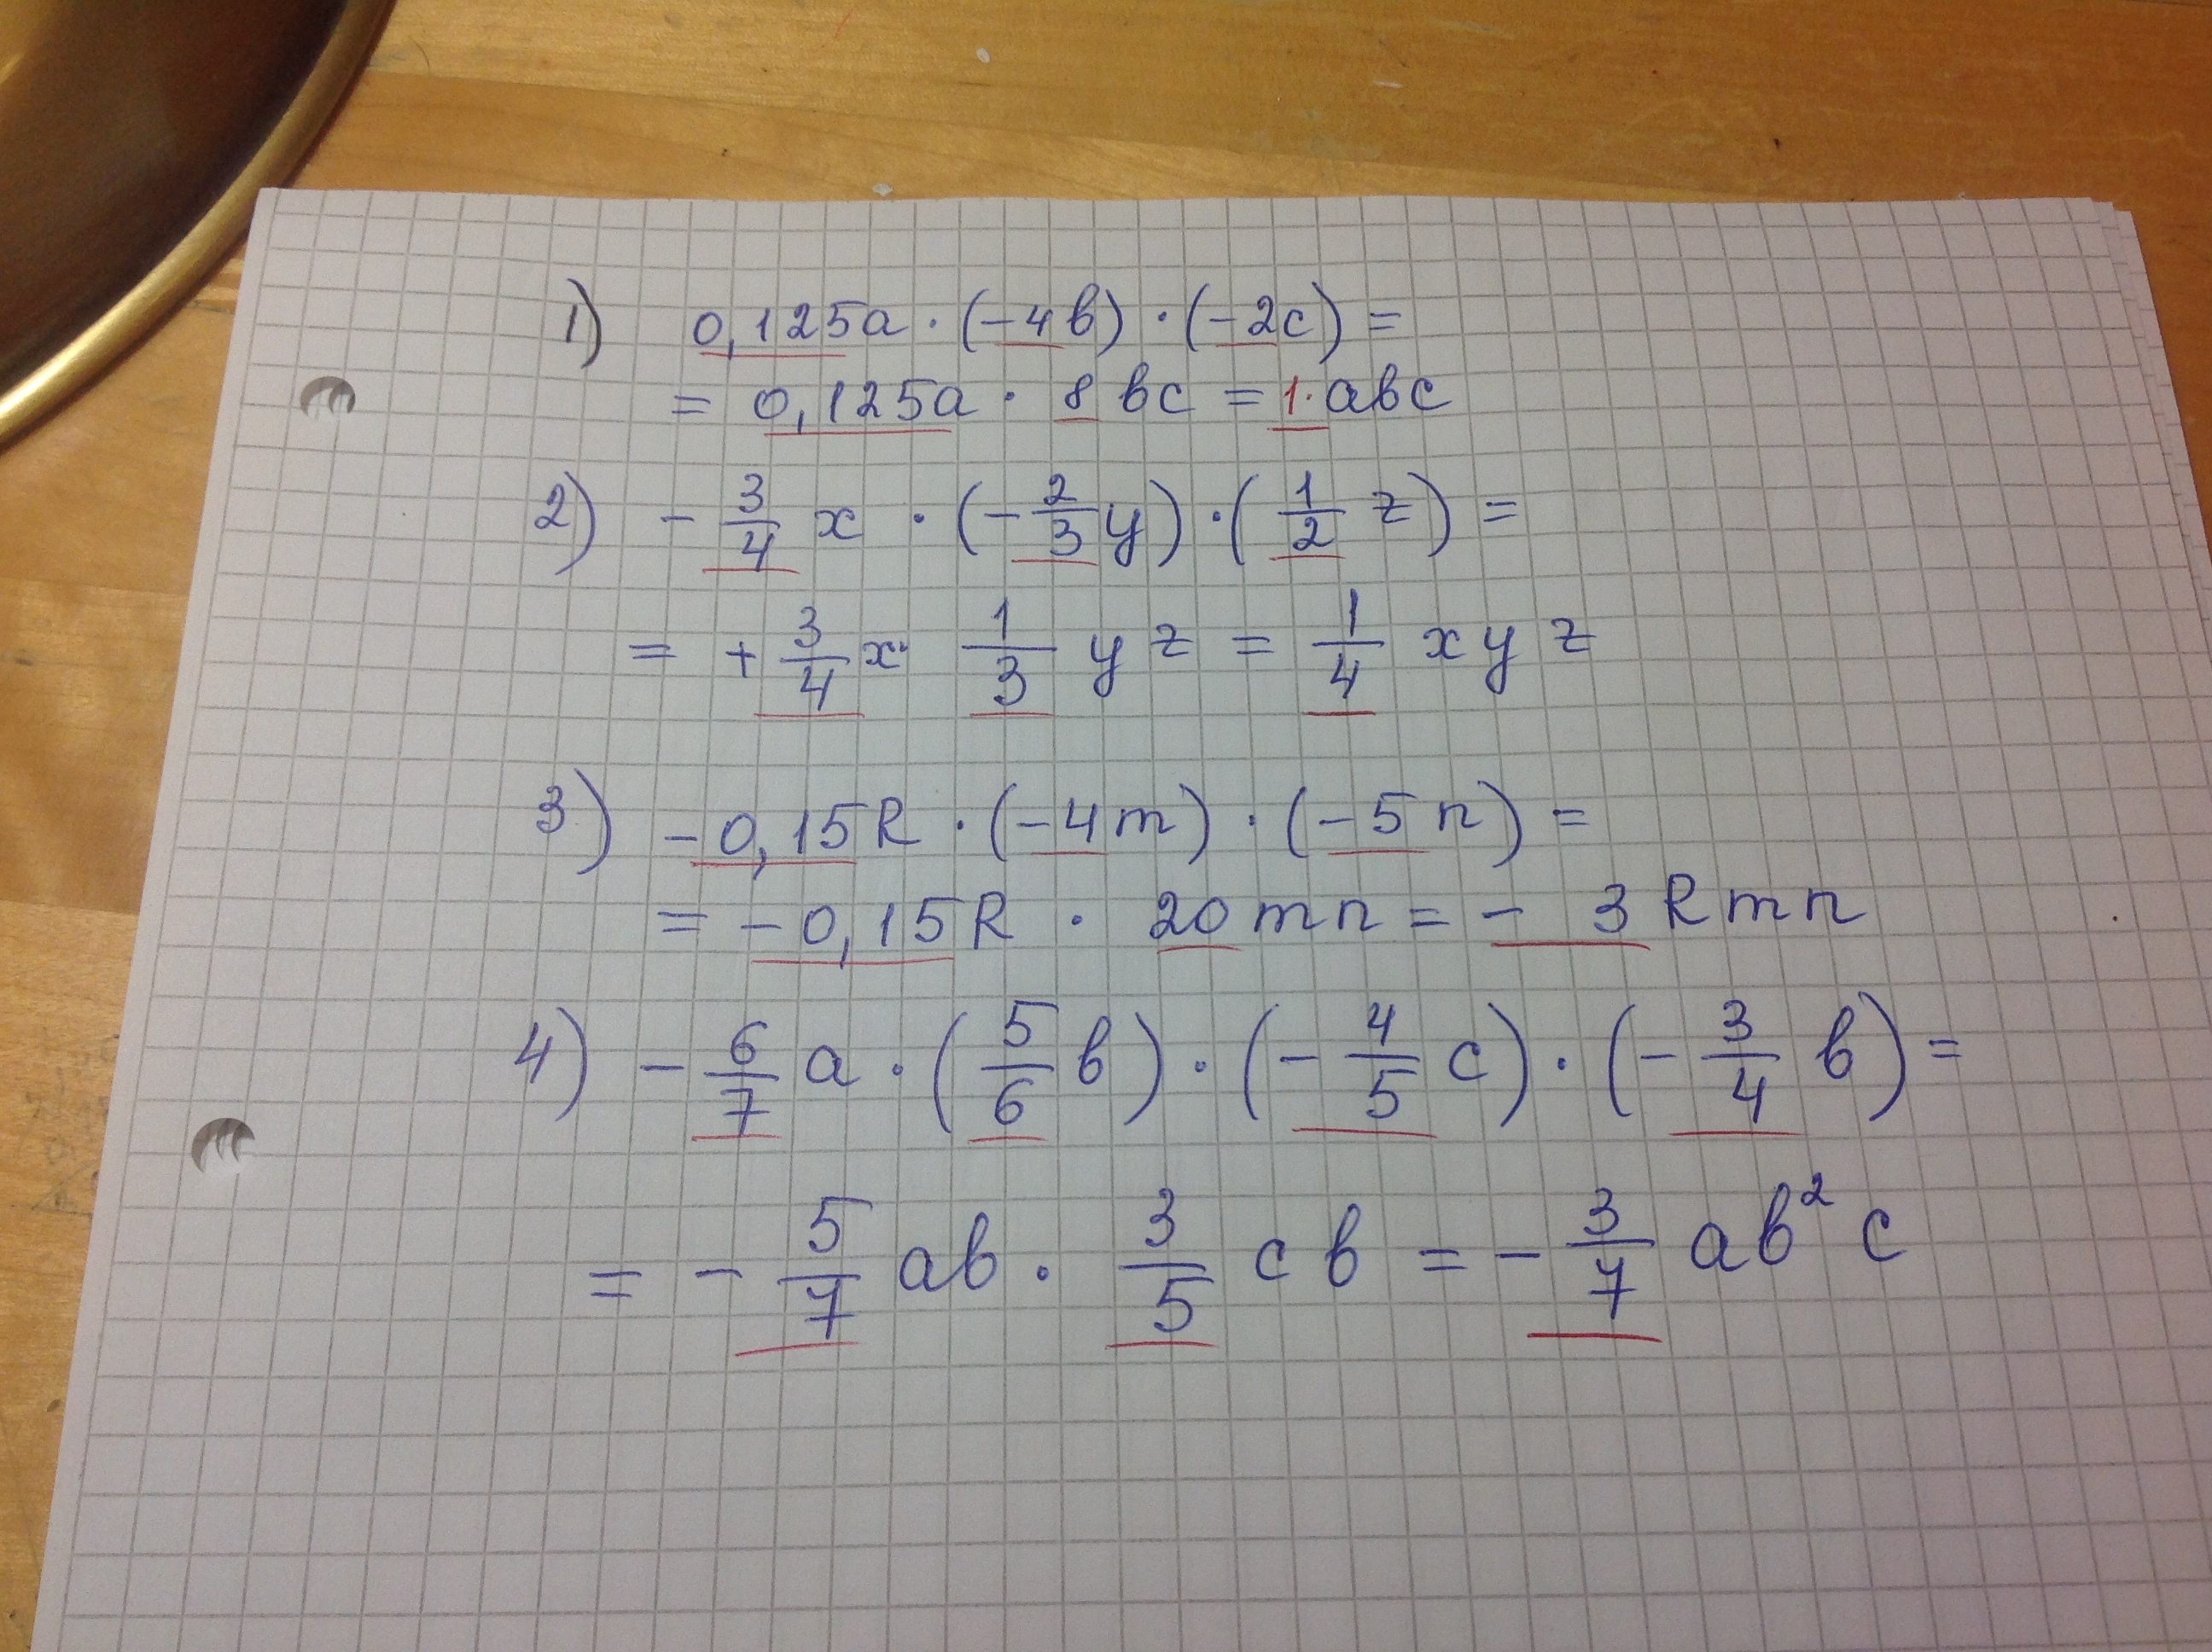 1) 0,125a · (-4b) · (-2c) =
= 0,125a · 8 bc = 1· abc
2) - 3/4 x · (- 2/3 y) · (1/2 z) =
= + 3/4 x · 1/3 y z = 1/4 x y z
3) -0,15R · (-4m) · (-5n) =
= -0,15R · 20mn = - 3Rmn
4) - 6/7 a · (5/6 b) · (- 4/5 c) · (- 3/4 b) =
= - 5/7 ab · 3/5 c b = - 3/7 ab² c